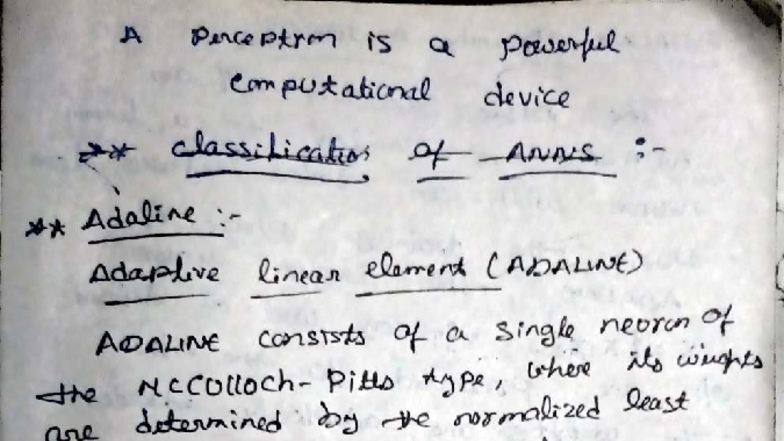 A perceptron is a powerful
computational device
** classification of ANNS :-
** Adaline :-
Adaptive linear element (ADALINE)
ADALINE consists of a single neoron of
the McCulloch-Pitts type, where its weights
are determined by the normalized least